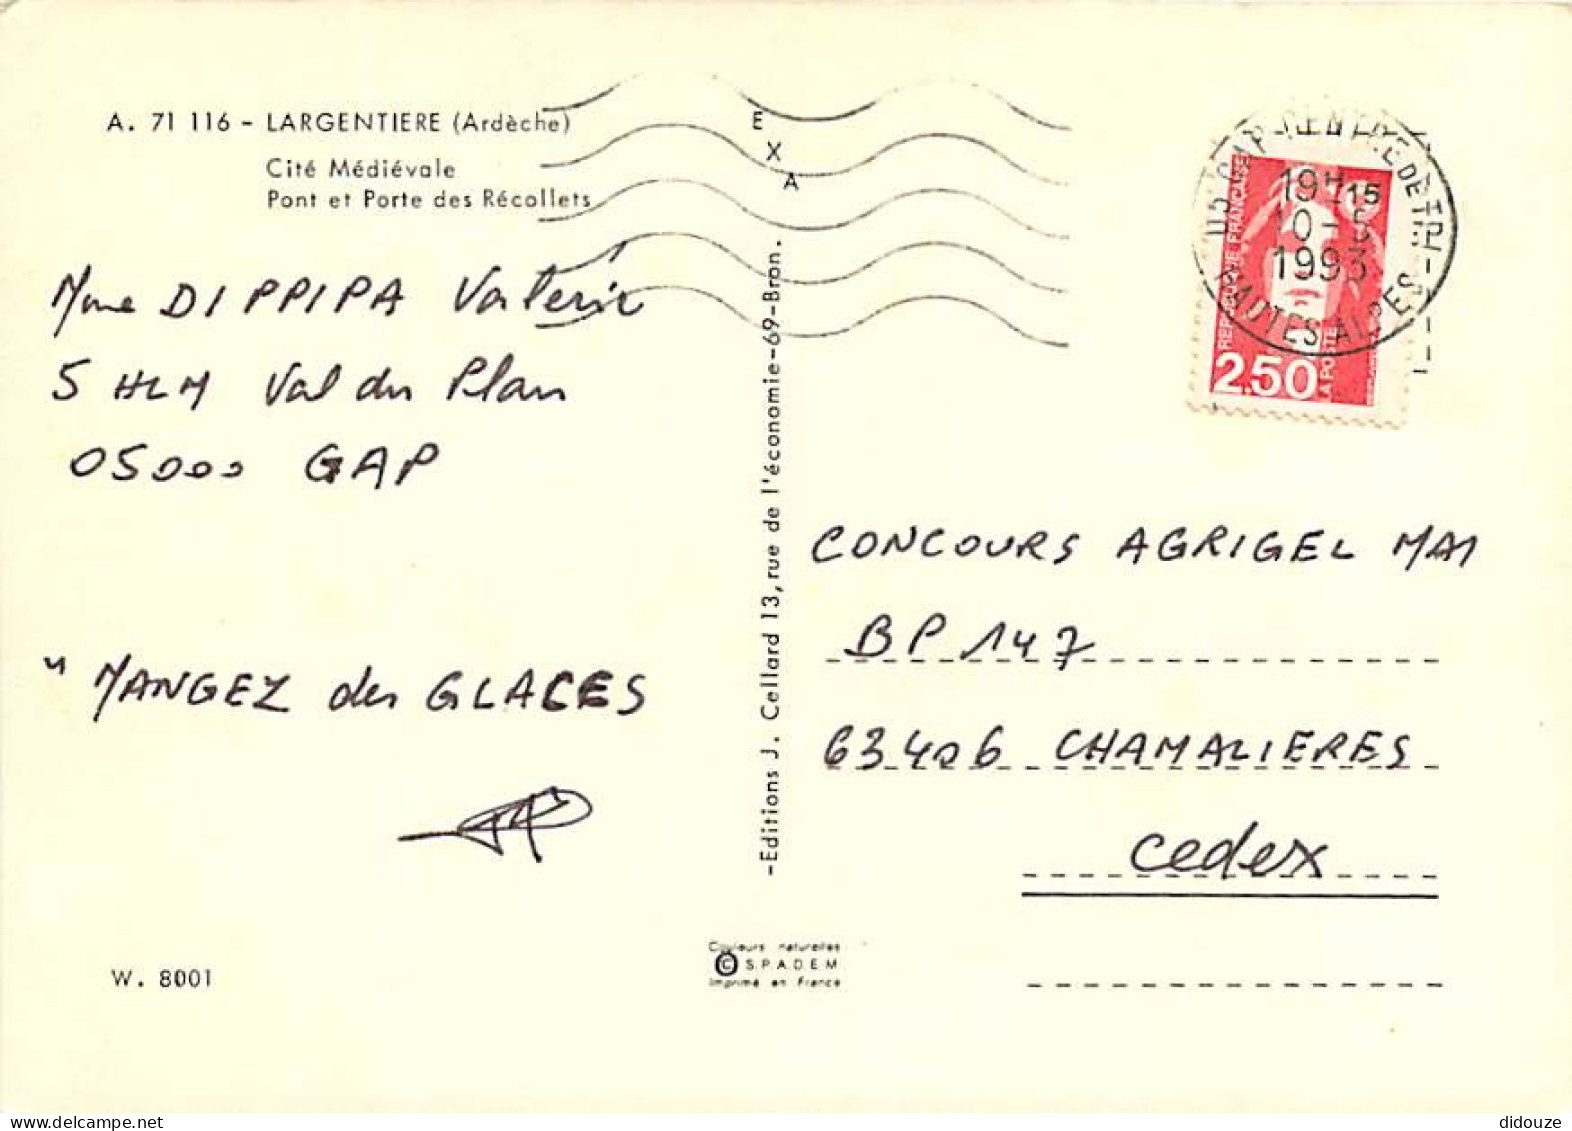 A. 71 116 - LARGENTIERE (Ardèche)
Cité Médiévale
Pont et Porte des Récollets
E
X
A
05 GAP CENTRE DE TRI
19H15
10-5
1993
HAUTES ALPES
REPUBLIQUE FRANÇAISE
2,50
LA POSTE
Mme DIPPIPA Valérie
5 HLM Val du Plan
05000 GAP
"MANGEZ des GLACES
-Editions J. Cellard 13, rue de l'économie-69-Bron.
CONCOURS AGRIGEL MAI
BP 147
63406 CHAMALIERES
cedex
Couleurs naturelles
© S.P.A.D.E.M
Imprimé en France
W. 8001
didouze